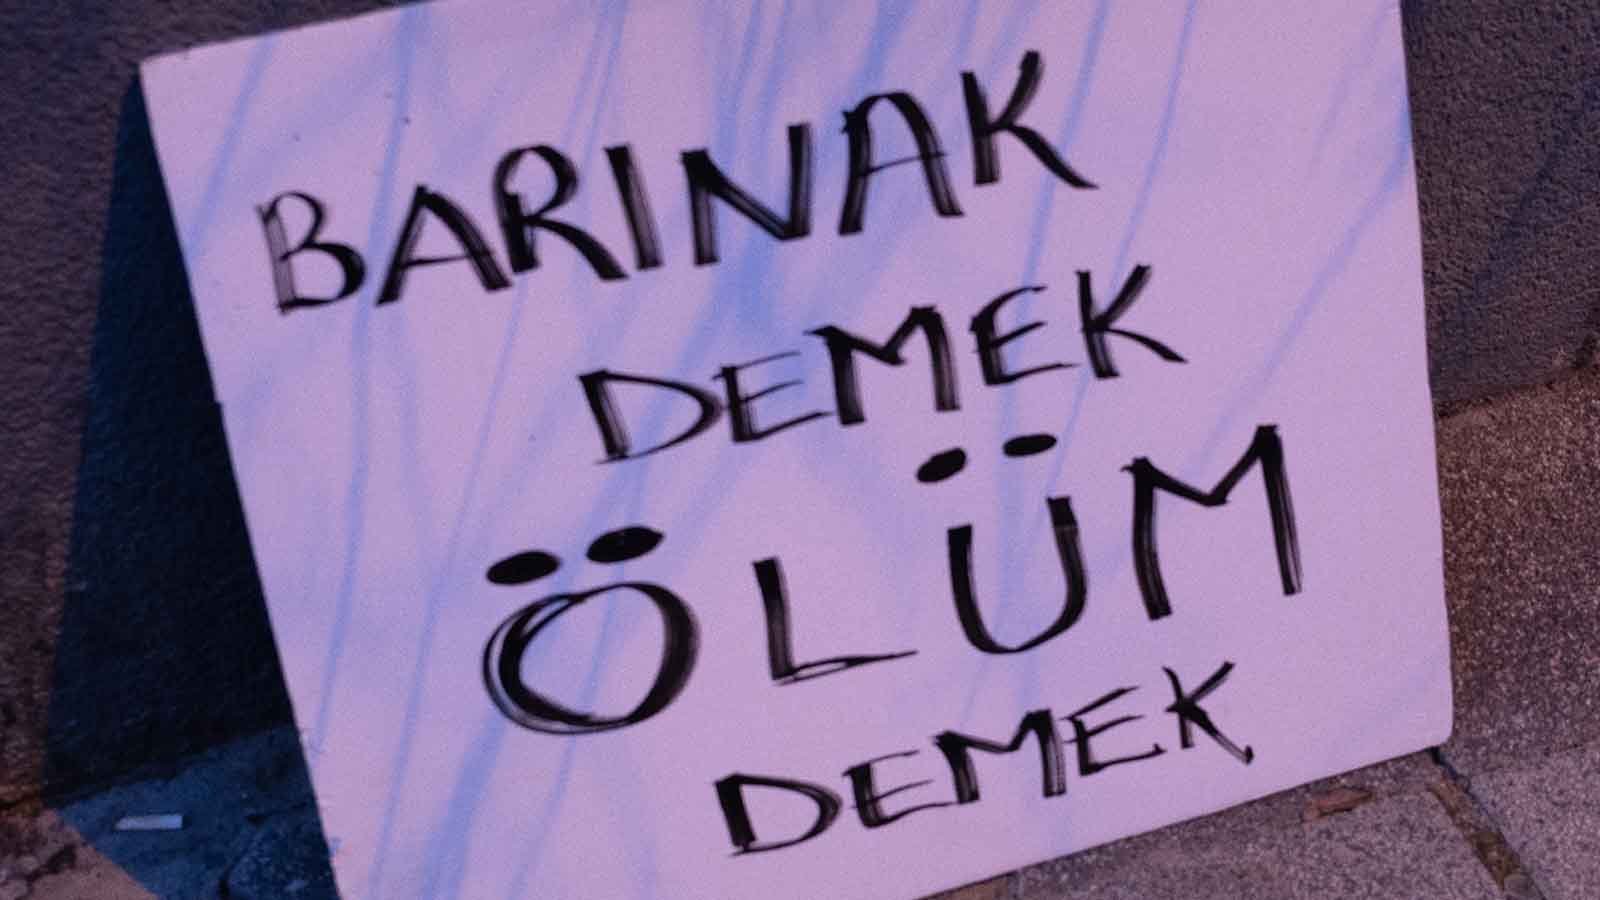 BARINAK
DEMEK
ÖLÜM
DEMEK